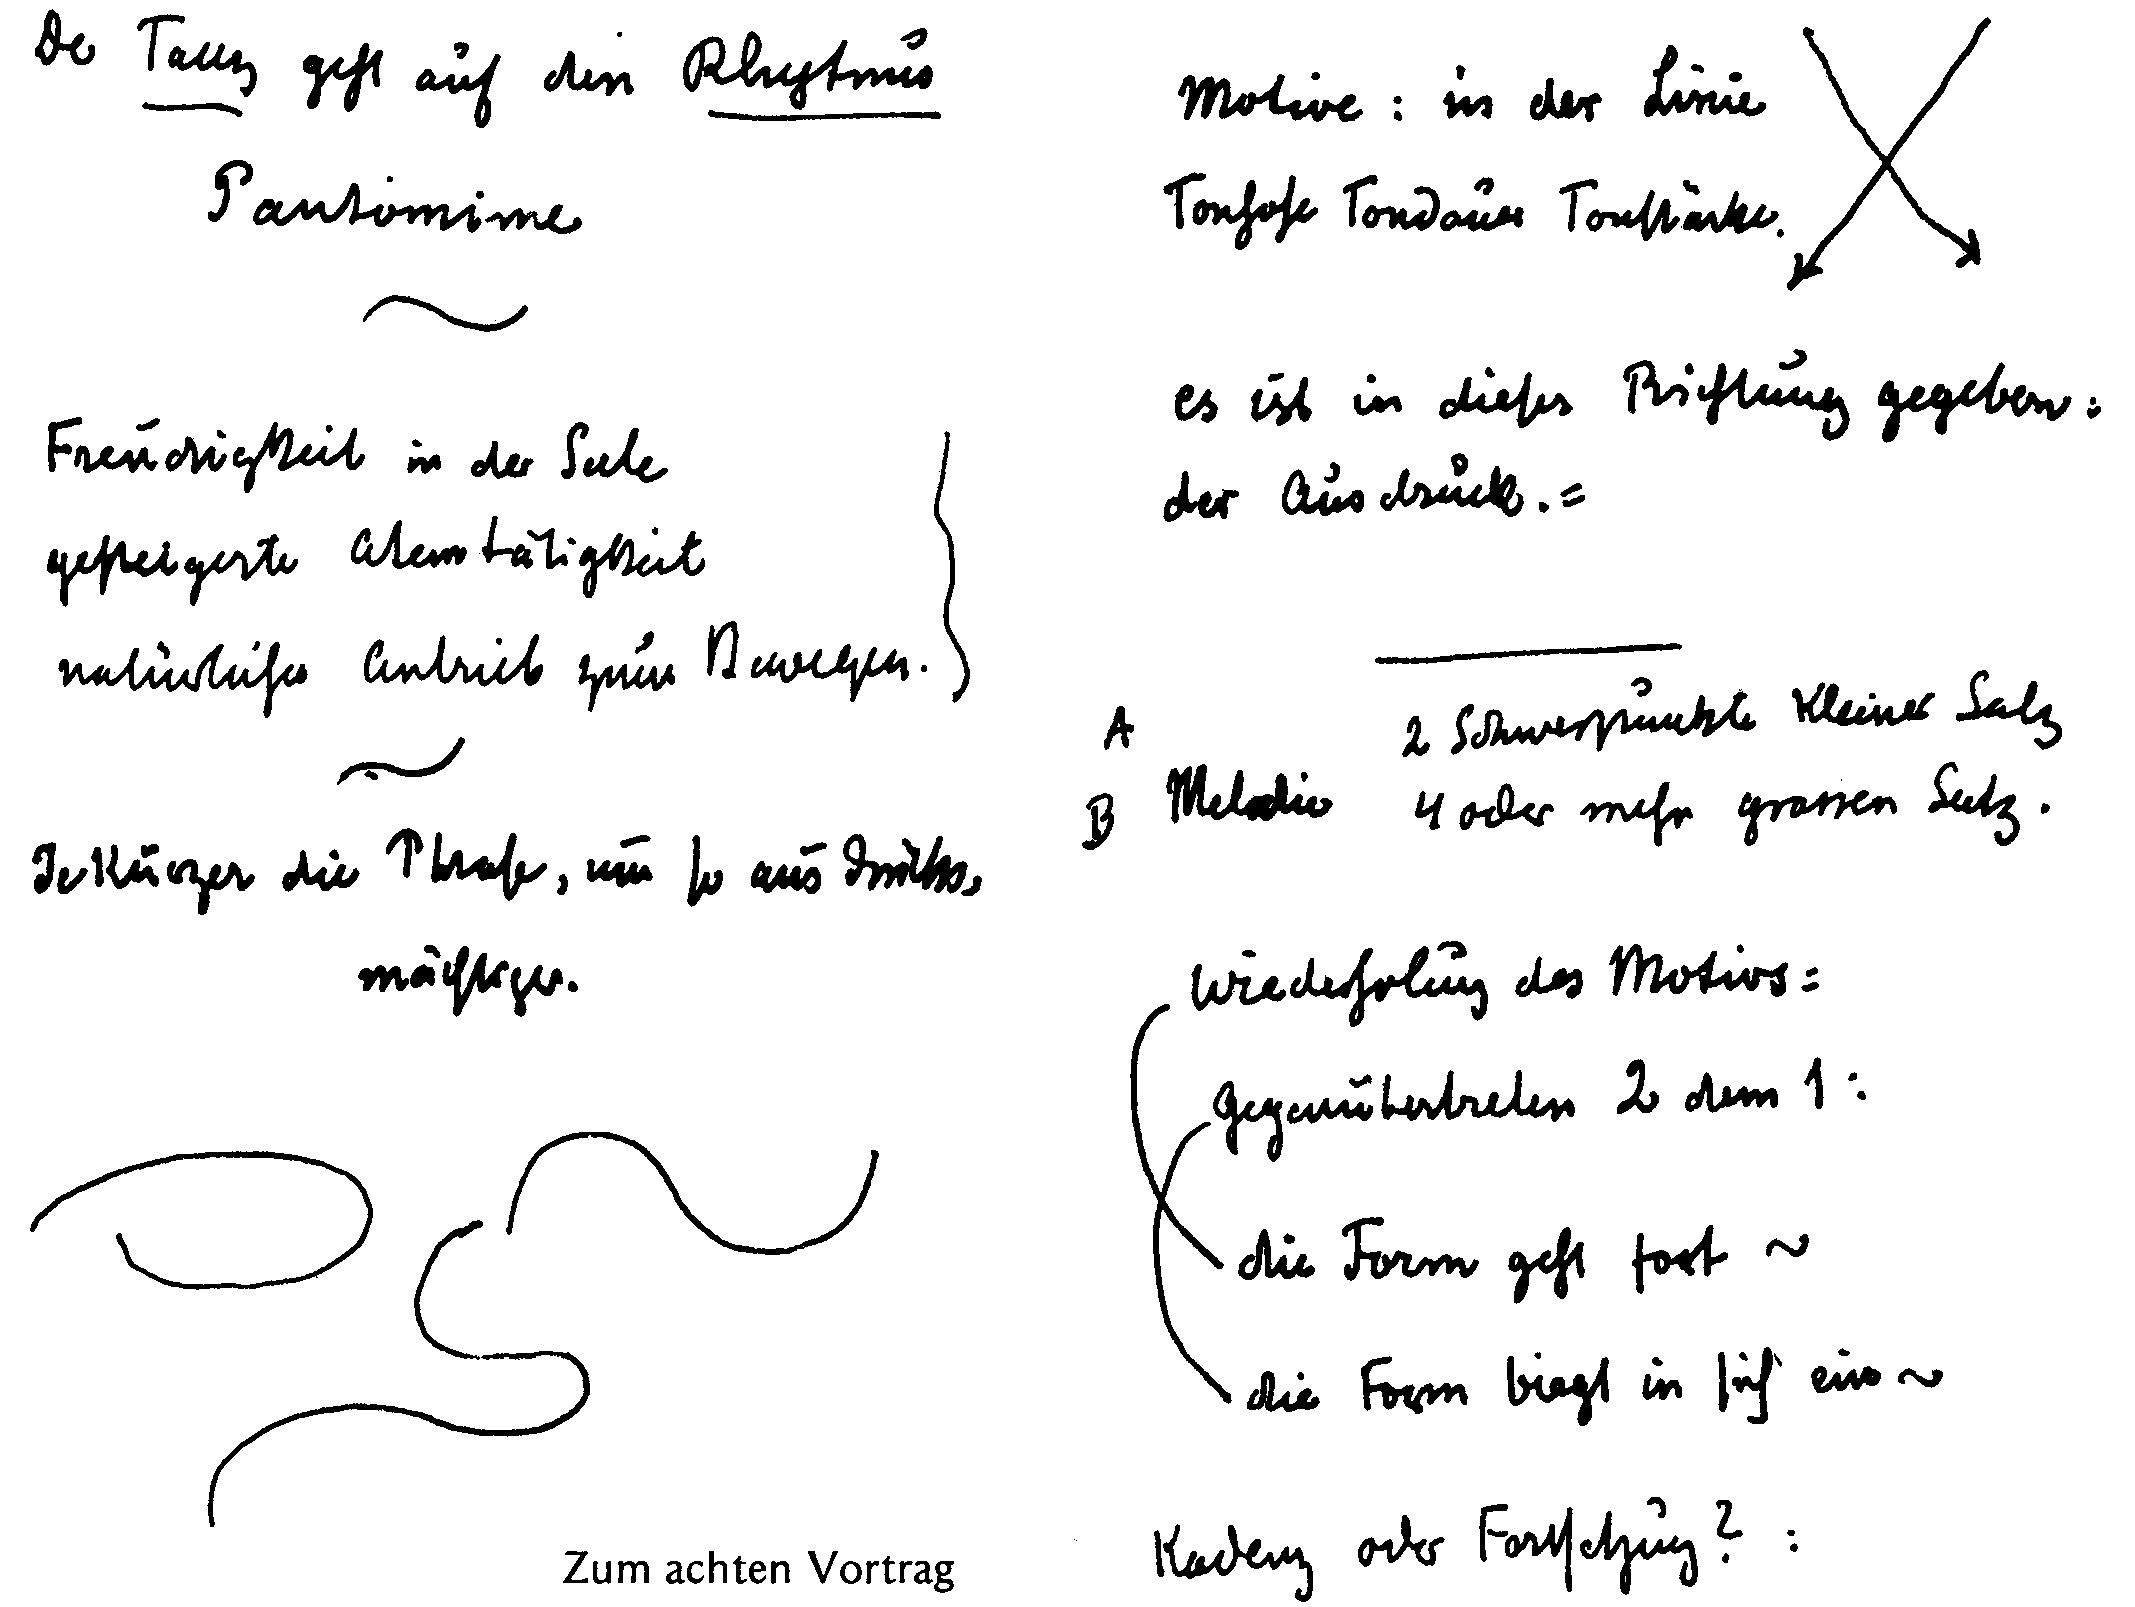 De Tanz geht auf den Rhytmus
Pantomime
Freudigkeit in der Seele
gesteigerte Atemtätigkeit
natürlicher Antrieb zum Bewegen.
Je kürzer die Phrase, um so ausdrucks-
mächtiger.
Zum achten Vortrag
Motive : in der Linie
Tonhöhe Tondauer Tonstärke.
es ist in dieser Richtung gegeben :
der Ausdruck. =
A 2 Schwerpunkte kleiner Satz
B Melodie 4 oder mehr grossen Satz.
Wiederholung des Motivs =
Gegenübertreten 2 dem 1 :
die Form geht fort ~
die Form biegt in sich ein ~
Kadenz oder Fortsetzung? :